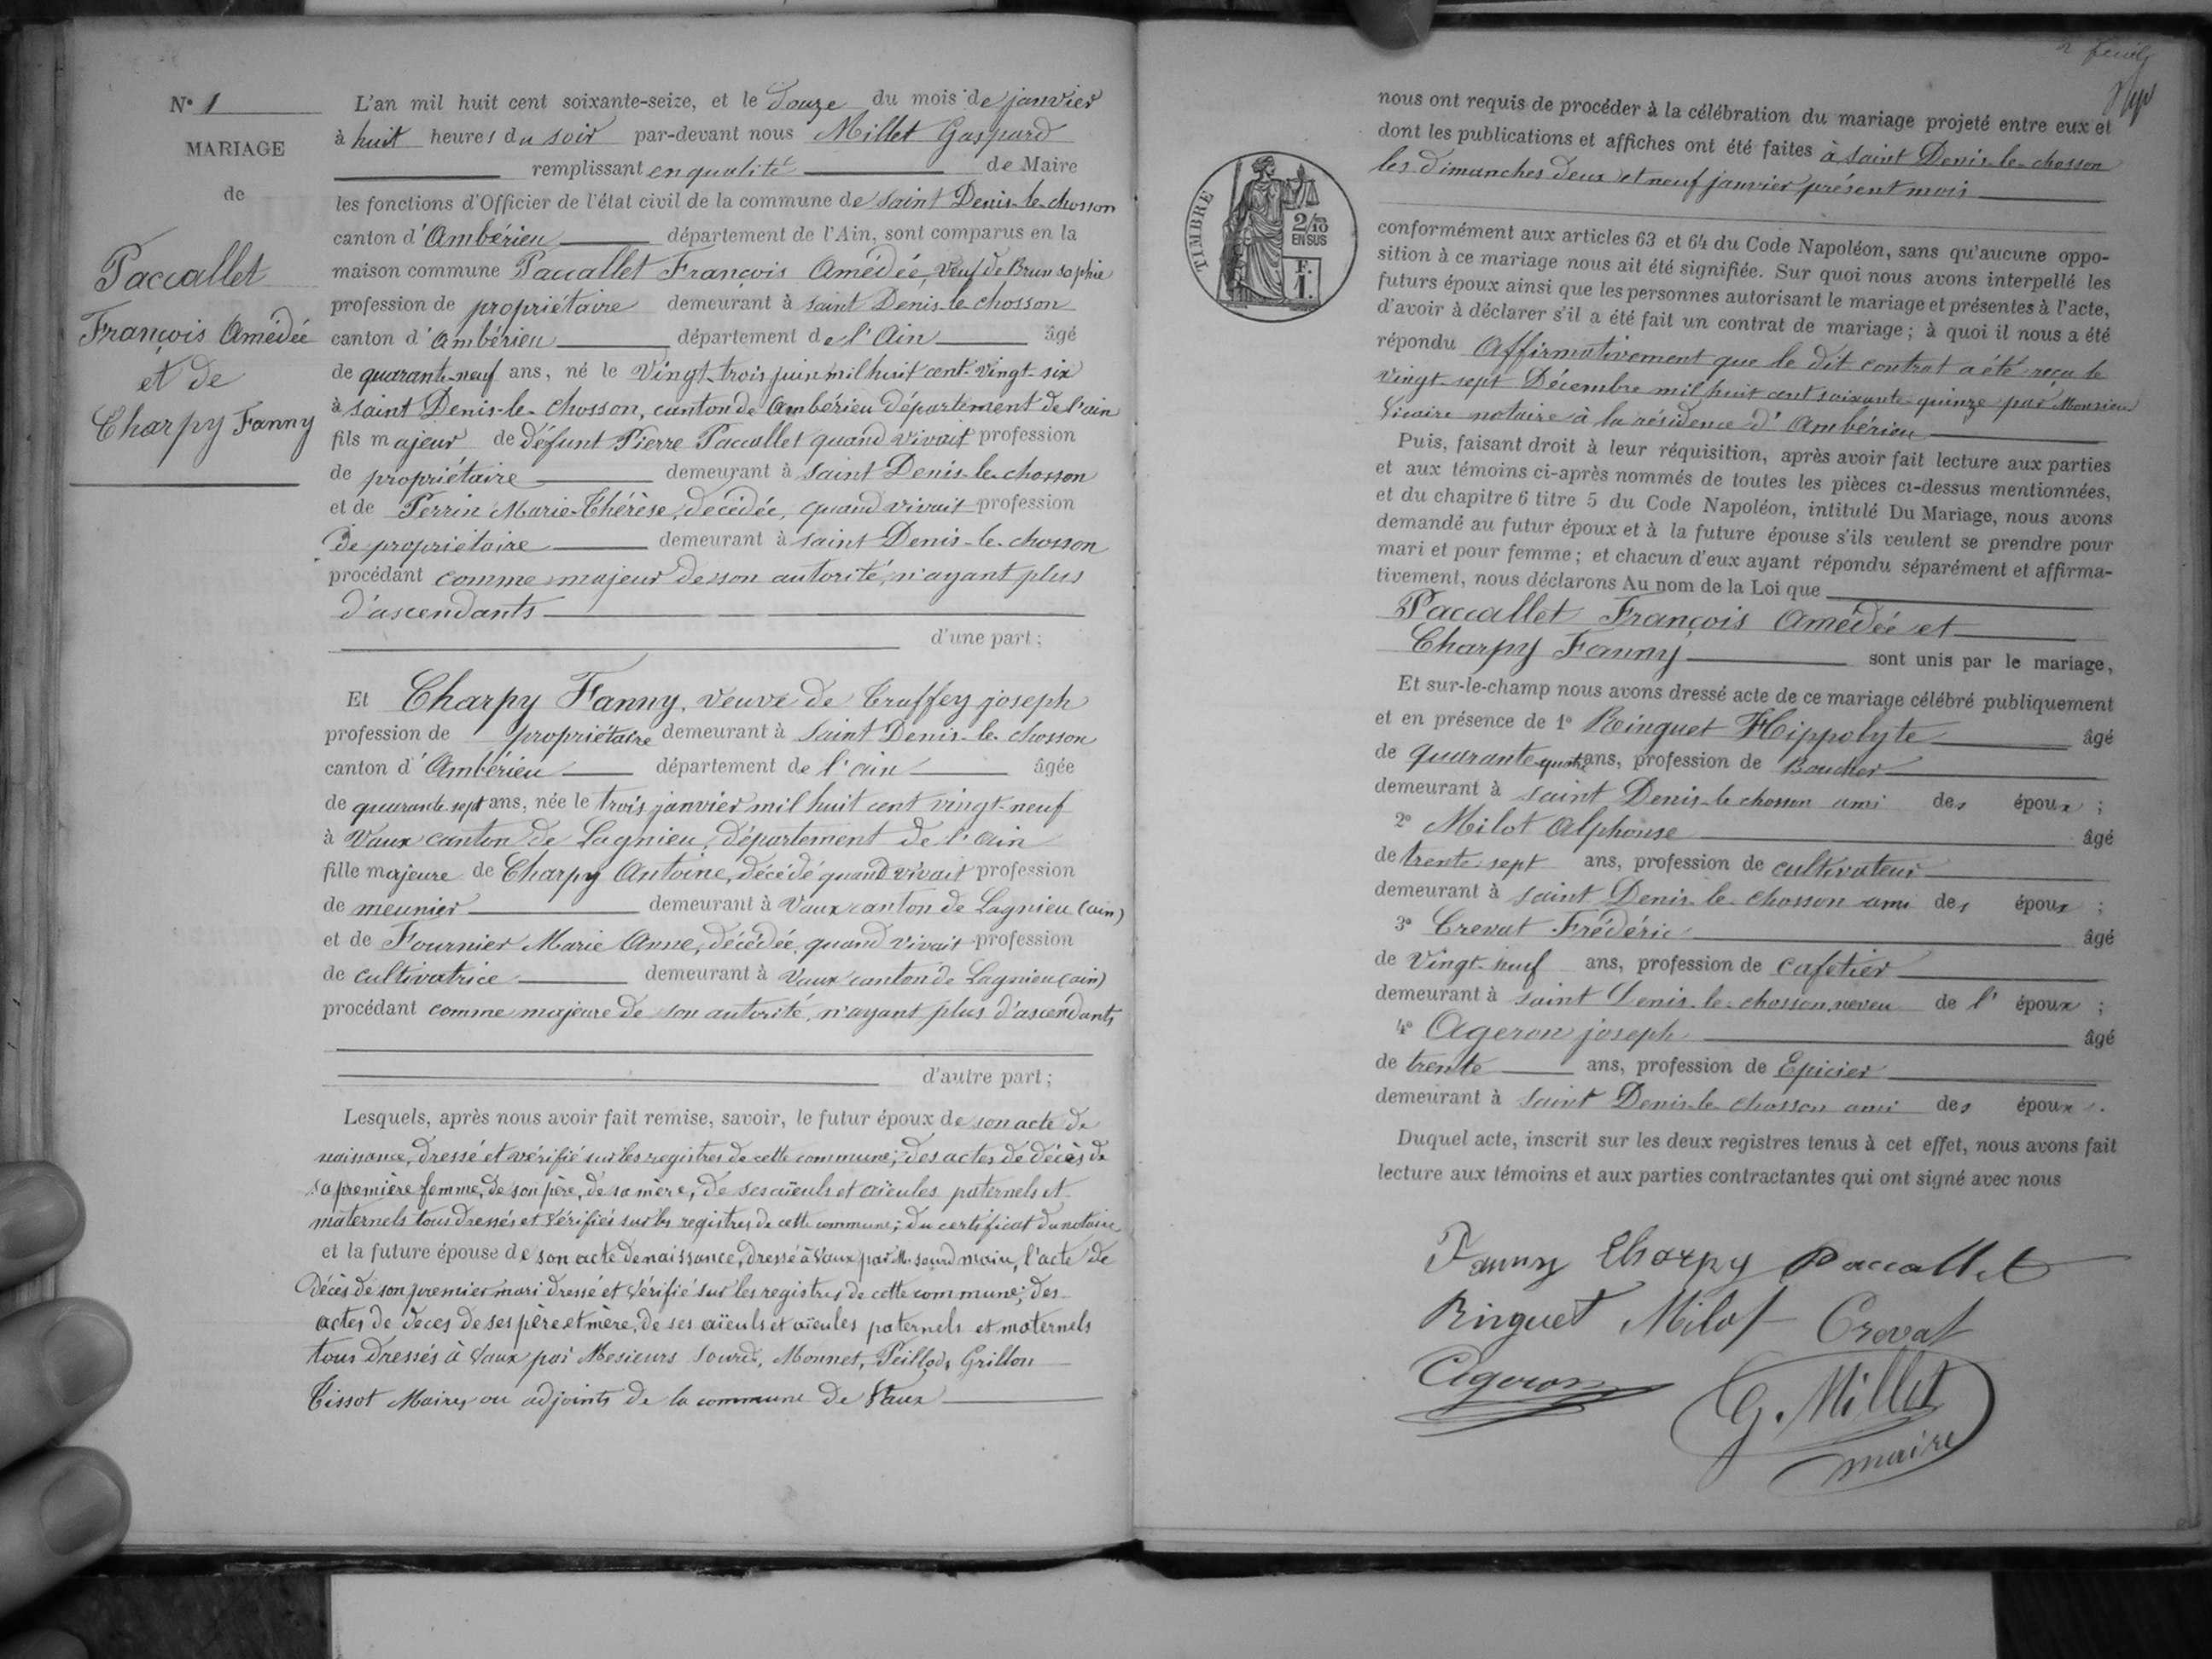 N° 1
MARIAGE
de
Paccallet
François Amédée
et de
Charpy Fanny
L'an mil huit cent soixante-seize, et le Douze du mois de janvier
à huit heures du soir par-devant nous Millet Gaspard
remplissant en qualité de Maire
les fonctions d'Officier de l'état civil de la commune de Saint Denis-le-chosson
canton d'Ambérieu département de l'Ain, sont comparus en la
maison commune Paccallet François Amédée, veuf de Brun sophie
profession de propriétaire demeurant à saint Denis-le chosson
canton d'Ambérieu département de l'Ain âgé
de quarante-neuf ans, né le Vingt-trois juin mil huit cent-vingt-six
à saint Denis-le-chosson, canton de Ambérieu département de l'ain
fils majeur de défunt Pierre Paccallet quand vivait profession
de propriétaire demeurant à saint Denis-le-chosson
et de Perrin Marie-Thérèse, décédée, quand vivait profession
de propriétaire demeurant à saint Denis-le-chosson
procédant comme majeur de son autorité, n'ayant plus
d'ascendants
d'une part ;
Et Charpy Fanny, veuve de Truffey joseph
profession de propriétaire demeurant à Saint Denis-le-chosson
canton d'Ambérieu département de l'ain âgée
de quarante sept ans, née le trois janvier mil huit cent vingt-neuf
à Vaux canton de Lagnieu, département de l'ain
fille majeure de Charpy Antoine, décédé quand vivait profession
de meunier demeurant à Vaux canton de Lagnieu (ain)
et de Fournier Marie Anne, décédée, quand vivait profession
de cultivatrice demeurant à Vaux canton de Lagnieu (ain)
procédant comme majeure de son autorité, n'ayant plus d'ascendants
d'autre part ;
Lesquels, après nous avoir fait remise, savoir, le futur époux de son acte de
naissance, dressé et vérifié sur les registres de cette commune ; des actes de décès de
sa première femme, de son père, de sa mère, de ses aïeuls et aïeules paternels et
maternels tous dressés et vérifiés sur les registres de cette commune ; du certificat du notaire
et la future épouse de son acte de naissance, dressé à Vaux par M. sourd maire, l'acte de
Décès de son premier mari dressé et vérifié sur les registres de cette commune ; des
actes de décès de ses père et mère, de ses aïeuls et aïeules paternels et maternels
tous dressés à Vaux par Mesieurs Sourd, Monnet, Peillod, Grillon
Tissot Maires ou adjoints de la commune de Vaux
TIMBRE
2/10
EN SUS
F.
1.
nous ont requis de procéder à la célébration du mariage projeté entre eux et
dont les publications et affiches ont été faites à saint Denis-le-chosson
les dimanches deux et neuf janvier présent mois
conformément aux articles 63 et 64 du Code Napoléon, sans qu'aucune oppo-
sition à ce mariage nous ait été signifiée. Sur quoi nous avons interpellé les
futurs époux ainsi que les personnes autorisant le mariage et présentes à l'acte,
d'avoir à déclarer s'il a été fait un contrat de mariage ; à quoi il nous a été
répondu Affirmativement que le dit contrat a été reçu le
vingt-sept Décembre mil huit cent soixante-quinze par Monsieur
Vicaire notaire à la résidence d'Ambérieu
Puis, faisant droit à leur réquisition, après avoir fait lecture aux parties
et aux témoins ci-après nommés de toutes les pièces ci-dessus mentionnées,
et du chapitre 6 titre 5 du Code Napoléon, intitulé Du Mariage, nous avons
demandé au futur époux et à la future épouse s'ils veulent se prendre pour
mari et pour femme ; et chacun d'eux ayant répondu séparément et affirma-
tivement, nous déclarons Au nom de la Loi que
Paccallet François Amédée et
Charpy Fanny sont unis par le mariage,
Et sur-le-champ nous avons dressé acte de ce mariage célébré publiquement
et en présence de 1° Reinguet Hippolyte âgé
de quarante quatre ans, profession de Boucher
demeurant à saint Denis-le chosson ami des époux ;
2° Milot Alphonse âgé
de trente-sept ans, profession de cultivateur
demeurant à saint Denis-le-chosson ami des époux ;
3° Crevat Frédéric âgé
de Vingt-neuf ans, profession de cafetier
demeurant à saint Denis-le-chosson, neveu de l'époux ;
4° Ageron joseph âgé
de trente ans, profession de Epicier
demeurant à Saint Denis-le-chosson ami des époux.
Duquel acte, inscrit sur les deux registres tenus à cet effet, nous avons fait
lecture aux témoins et aux parties contractantes qui ont signé avec nous
Fanny Charpy Paccallet
Ringuet Milot Crevat
Ageron G. Millet
maire